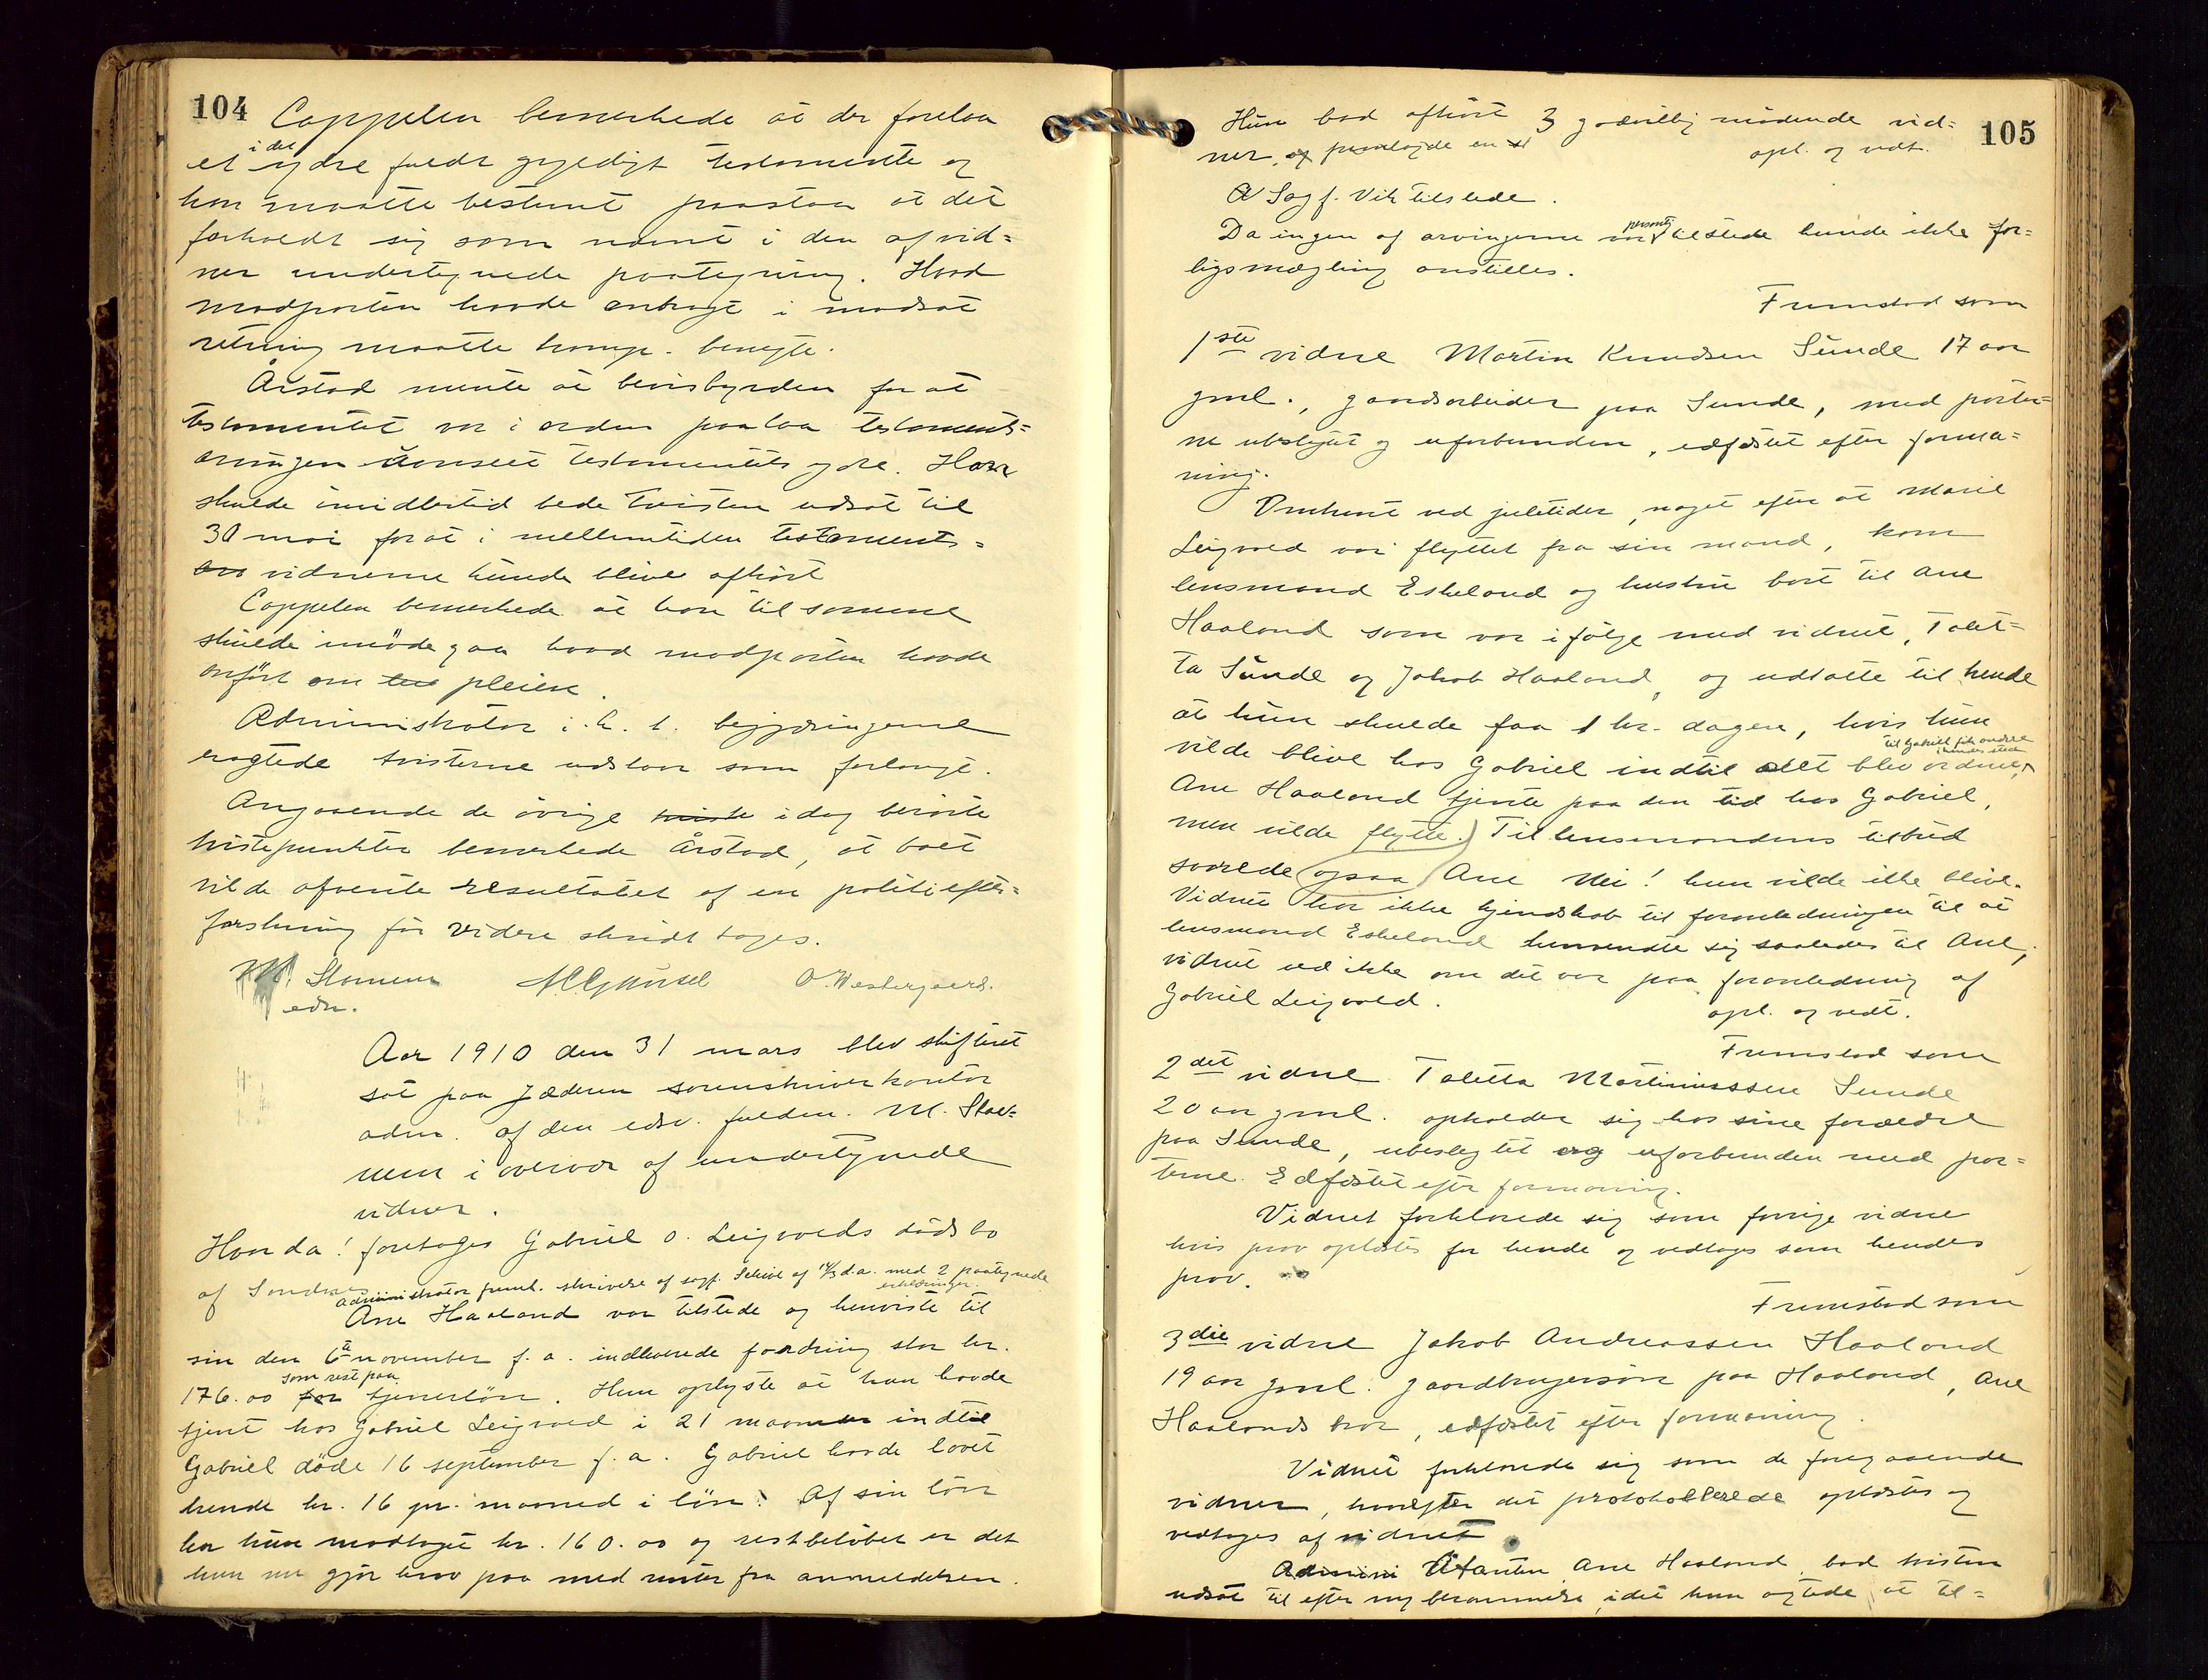 104
Cappelen bemerkede at der forelaa
et i det ydre fuldt gyldigt testamente og
han maatte bestemt paastaa at det
forholdt sig som nævnt i den af vid=
ner undertegnede paategning. Hvad
modparten havde anbragt i modsat
retning maatte komp. benegte.
Årstad mente at bevisbyrden for at
testamentet var i orden paalaa testaments=
arvingen uanseet testamentets ydre. Han
skulde imidlertid bede tvisten udsat til
30 mai forat i mellemtiden testaments=
vidnerne kunde blive afhørt
Cappelen bemerkede at han til samme
skulde imødegaa hvad modparten havde
anført om pleien.
Administrator i. h. t. begjæringerne
eragtede tvisterne udsatte som forlangt.
Angaaende de øvrige idag berørte
tvistepunkter bemerkede Årstad, at boet
vilde afvente resultatet af en politiefter=
forskning før videre skridt tages.
M. Stamnen
edsv.
O. Westergaard.
Aar 1910 den 31 mars blev skifteret
sat paa Jæderen sorenskriverkontor
adm. af den edsv. fuldm. M. Stav=
nem i overvær af undertegnede
vidner.
Hvorda! foretoges Gabriel O. Leigvolds dødsbo
af Sandnes
Administrator freml. skrivelse af sagf. Schive af 14/3 d.a. med 2 paategnede
erklæringer.
Ane Haaland var tilstede og henviste til
sin den 6 november f. a. indleverede fordring stor kr.
176.00 som rest paa tjenerløn. Hun oplyste at hun havde
tjent hos Gabriel Leigvold i 21 maaneder indtil
Gabriel døde 16 september f. a. Gabriel havde lovet
hende kr. 16 pr. maaned i løn. Af sin løn
har hun modtaget kr. 160.00 og restbeløbet er det
hun nu gjør krav paa med renter fra anmeldelsen.
105
Hun bad afhørt 3 godvillig mødende vid=
ner,
opl. og vedt.
Sagf. Vik tilstede.
Da ingen af arvingerne var personlig tilstede kunde ikke for=
ligsmægling anstilles.
Fremstod som
1ste vidne Martin Knudsen Sunde 17 aar
gml., gaardsarbeider paa Sunde, med parter=
ne ubeslegtet og uforbunden, edfæstet efter forma=
ning.
Omkring ved juletider, noget efter at Marie
Leigvold var flyttet fra sin mand, kom
lensmand Eskeland og hustru bort til Ane
Haaland som var ifølge med vidnet, Talet=
ta Sunde og Jakob Haaland, og udtalte til hende
at hun skulde faa 1 kr. dagen, hvis hun
vilde blive hos Gabriel indtil alt blev ordnet,
til Gabriel fik andre
i hendes sted
Ane Haaland tjente paa den tid hos Gabriel,
men vilde flytte. Til lensmandens tilbud
svarede ogsaa Ane Nei! hun vilde ikke blive.
Vidnet har ikke kjendskab til foranledningen til at
lensmand Eskeland henvendte sig saaledes til Ane,
vidnet ved ikke om det var paa foranledning af
Gabriel Leigvold.
opl. og vedt.
Fremstod som
2det vidne Taletta Martiniussen Sunde
20 aar gml. opholder sig hos sine forældre
paa Sunde, ubeslegtet og uforbunden med par=
terne. Edfæstet efter formaning.
Vidnet forklarede sig som forrige vidne
hvis prov oplæstes for hende og vedtoges som hendes
prov.
Fremstod som
3die vidne Jakob Andreassen Haaland
19 aar gml. gaardbrugersøn paa Haaland, Ane
Haalands bror, edfæstet efter formaning.
Vidnet forklarede sig som de foregaaende
vidner, hvorefter det protokollerede oplæstes og
vedtoges af vidnet
Citanten Ane Haaland bad tvisten
udsat til efter ny berammelse, idet hun agtede at til=